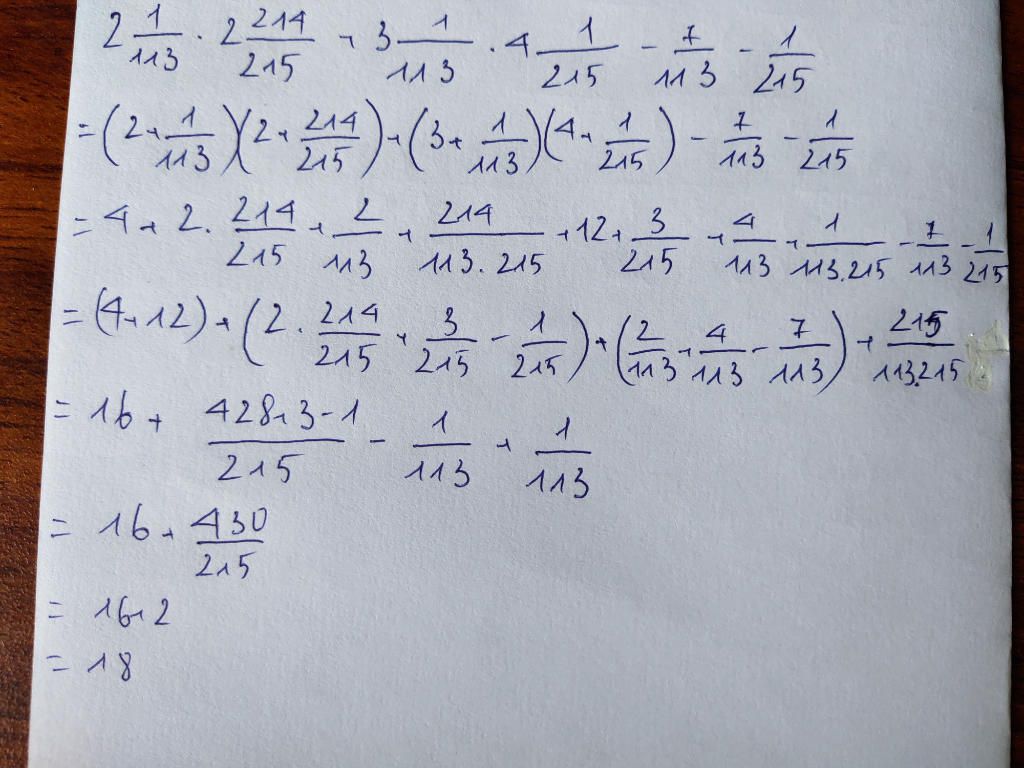 2 1/113 · 2 214/215 + 3 1/113 · 4 1/215 - 7/113 - 1/215
= (2 + 1/113)(2 + 214/215) + (3 + 1/113)(4 + 1/215) - 7/113 - 1/215
= 4 + 2 · 214/215 + 2/113 + 214/113.215 + 12 + 3/215 + 4/113 + 1/113.215 - 7/113 - 1/215
= (4 + 12) + (2 · 214/215 + 3/215 - 1/215) + (2/113 + 4/113 - 7/113) + 215/113.215
= 16 + 428+3-1/215 - 1/113 + 1/113
= 16 + 430/215
= 16+2
= 18